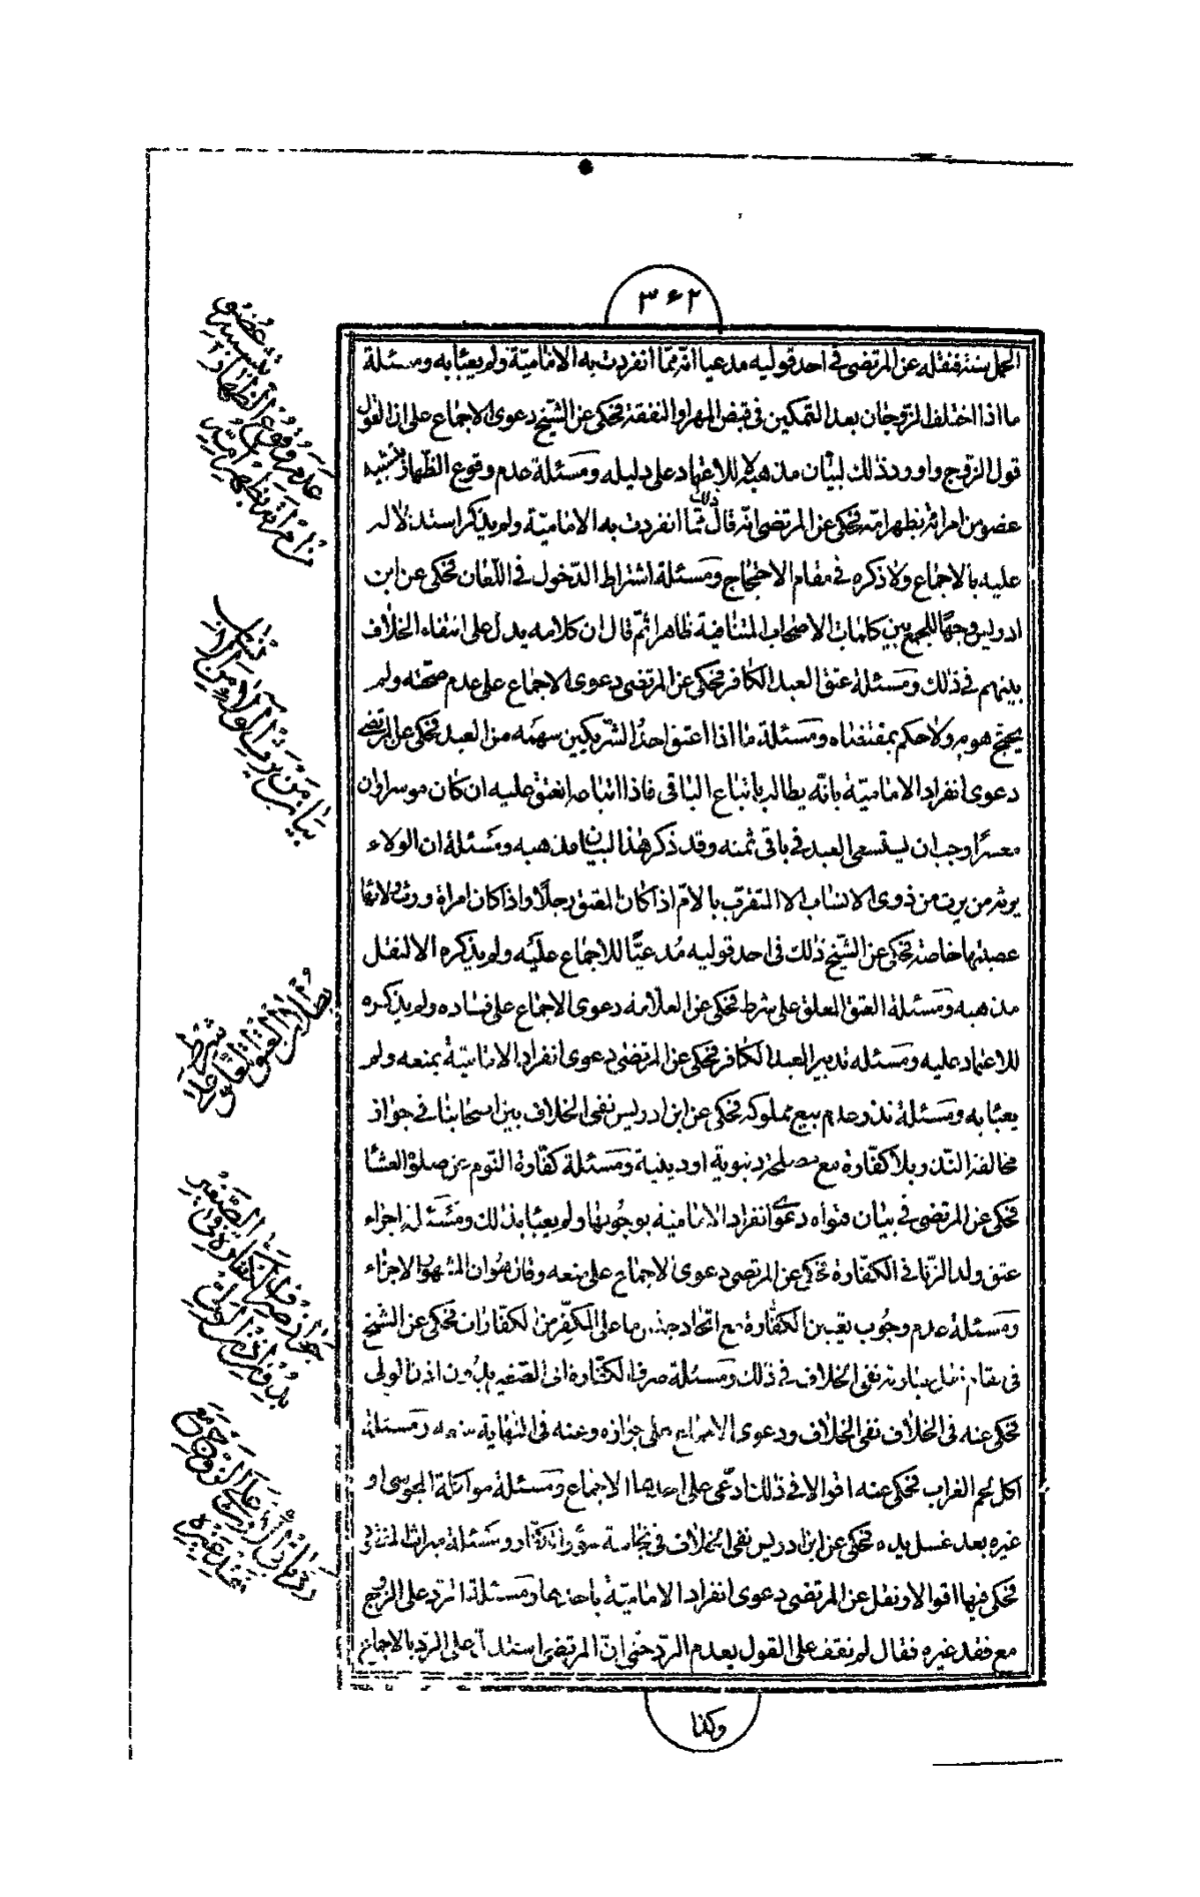 ٣٤٢
الحمل سنة فنقله عن المرتضى فى احد قوليه مدعيا انه مما انفردت به الامامية ولم يعبأ به ومسئلة
ما اذا اختلف الزوجان بعد التمكين فى قبض المهر او النفقة فحكى عن الشيخ دعوى الاجماع على ان القول
قول الزوج واورد ذلك لبيان مذهبه لا للاعتماد على دليله ومسئلة عدم وقوع الظهار بتشبيه
عضو من امرأته بظهر امه فحكى عن المرتضى انه قال ذلك مما انفردت به الامامية ولم يذكر استدلاله
عليه بالاجماع ولا ذكره فى مقام الاحتجاج ومسئلة اشتراط الدخول فى اللعان فحكى عن ابن
ادريس وجها للجمع بين كلمات الاصحاب المتنافية ظاهرا ثم قال ان كلامه يدل على انتفاء الخلاف
بينهم فى ذلك ومسئلة عتق العبد الكافر فحكى عن المرتضى دعوى الاجماع على عدم صحته ولم
يحتج هو به ولا حكم بمقتضاه ومسئلة ما اذا اعتق احد الشريكين سهمه من العبد فحكى عن المرتضى
دعوى انفراد الامامية بانه يطالب بابتياع الباقى فاذا ابتاعه انعتق عليه ان كان موسرا وان
معسرا وجب ان يستسعى العبد فى باقى ثمنه وقد ذكر هذا لبيان مذهبه ومسئلة ان الولاء
يرثه من يرث من ذوى الانساب الا المتقرب بالام اذا كان المعتق رجلا واذا كان امرأة ورث ولائها
عصبتها خاصة فحكى عن الشيخ ذلك فى احد قوليه مدعيا للاجماع عليه ولم يذكره الا لنقل
مذهبه ومسئلة العتق المعلق على شرط فحكى عن العلامة دعوى الاجماع على فساده ولم يذكره
للاعتماد عليه ومسئله تدبير العبد الكافر فحكى عن المرتضى دعوى انفراد الامامية بمنعه ولم
يعبأ به ومسئلة نذر عدم بيع مملوكه فحكى عن ابن ادريس نفى الخلاف بين اصحابنا فى جواز
مخالفة النذر وبلا كفارة مع مصلحة دنيوية او دينية ومسئلة كفارة النوم عن صلوة العشا
فحكى عن المرتضى فى بيان فتواه دعوى انفراد الامامية بوجوبها ولم يعبأ بذلك ومسئلة اجزاء
عتق ولد الزنا فى الكفارة فحكى عن المرتضى دعوى الاجماع على منعه وقال هو ان المشهور الاجزاء
ومسئلة عدم وجوب تعيين الكفارة مع اتحاد جنس ما على المكفر من الكفارات فحكى عن الشيخ
فى مقام نقل عبارته نفى الخلاف فى ذلك ومسئلة صرف الكفارة الى الصغير بدون اذن الولى
فحكى عنه فى الخلاف نفى الخلاف ودعوى الاجماع على جوازه وعنه فى النهاية منعه ومسئلة
اكل لحم الغراب فحكى عنه اقوالا فى ذلك ادعى على احدها الاجماع ومسئلة مواكلة المجوسى او
غيره بعد غسل يده فحكى عن ابن ادريس نفى الخلاف فى نجاسة سؤر الكفار ومسئلة ميراث الخنثى
فحكى فيها اقوالا ونقل عن المرتضى دعوى انفراد الامامية باحدها ومسئلة الرد على الزوج
مع فقد غيره فقال لم نقف على القول بعدم الرد حتى ان المرتضى استدل على الرد بالاجماع
وكذا
عدم وقوع الظهار بتشبيه عضو
من امرأته بظهر امه
بيان من يرث الولاء من الانساب
بطلان العتق المعلق على شرط
جواز صرف الكفارة الى الصغير
بدون اذن الولى
الرد على الزوج مع
فقد غيره